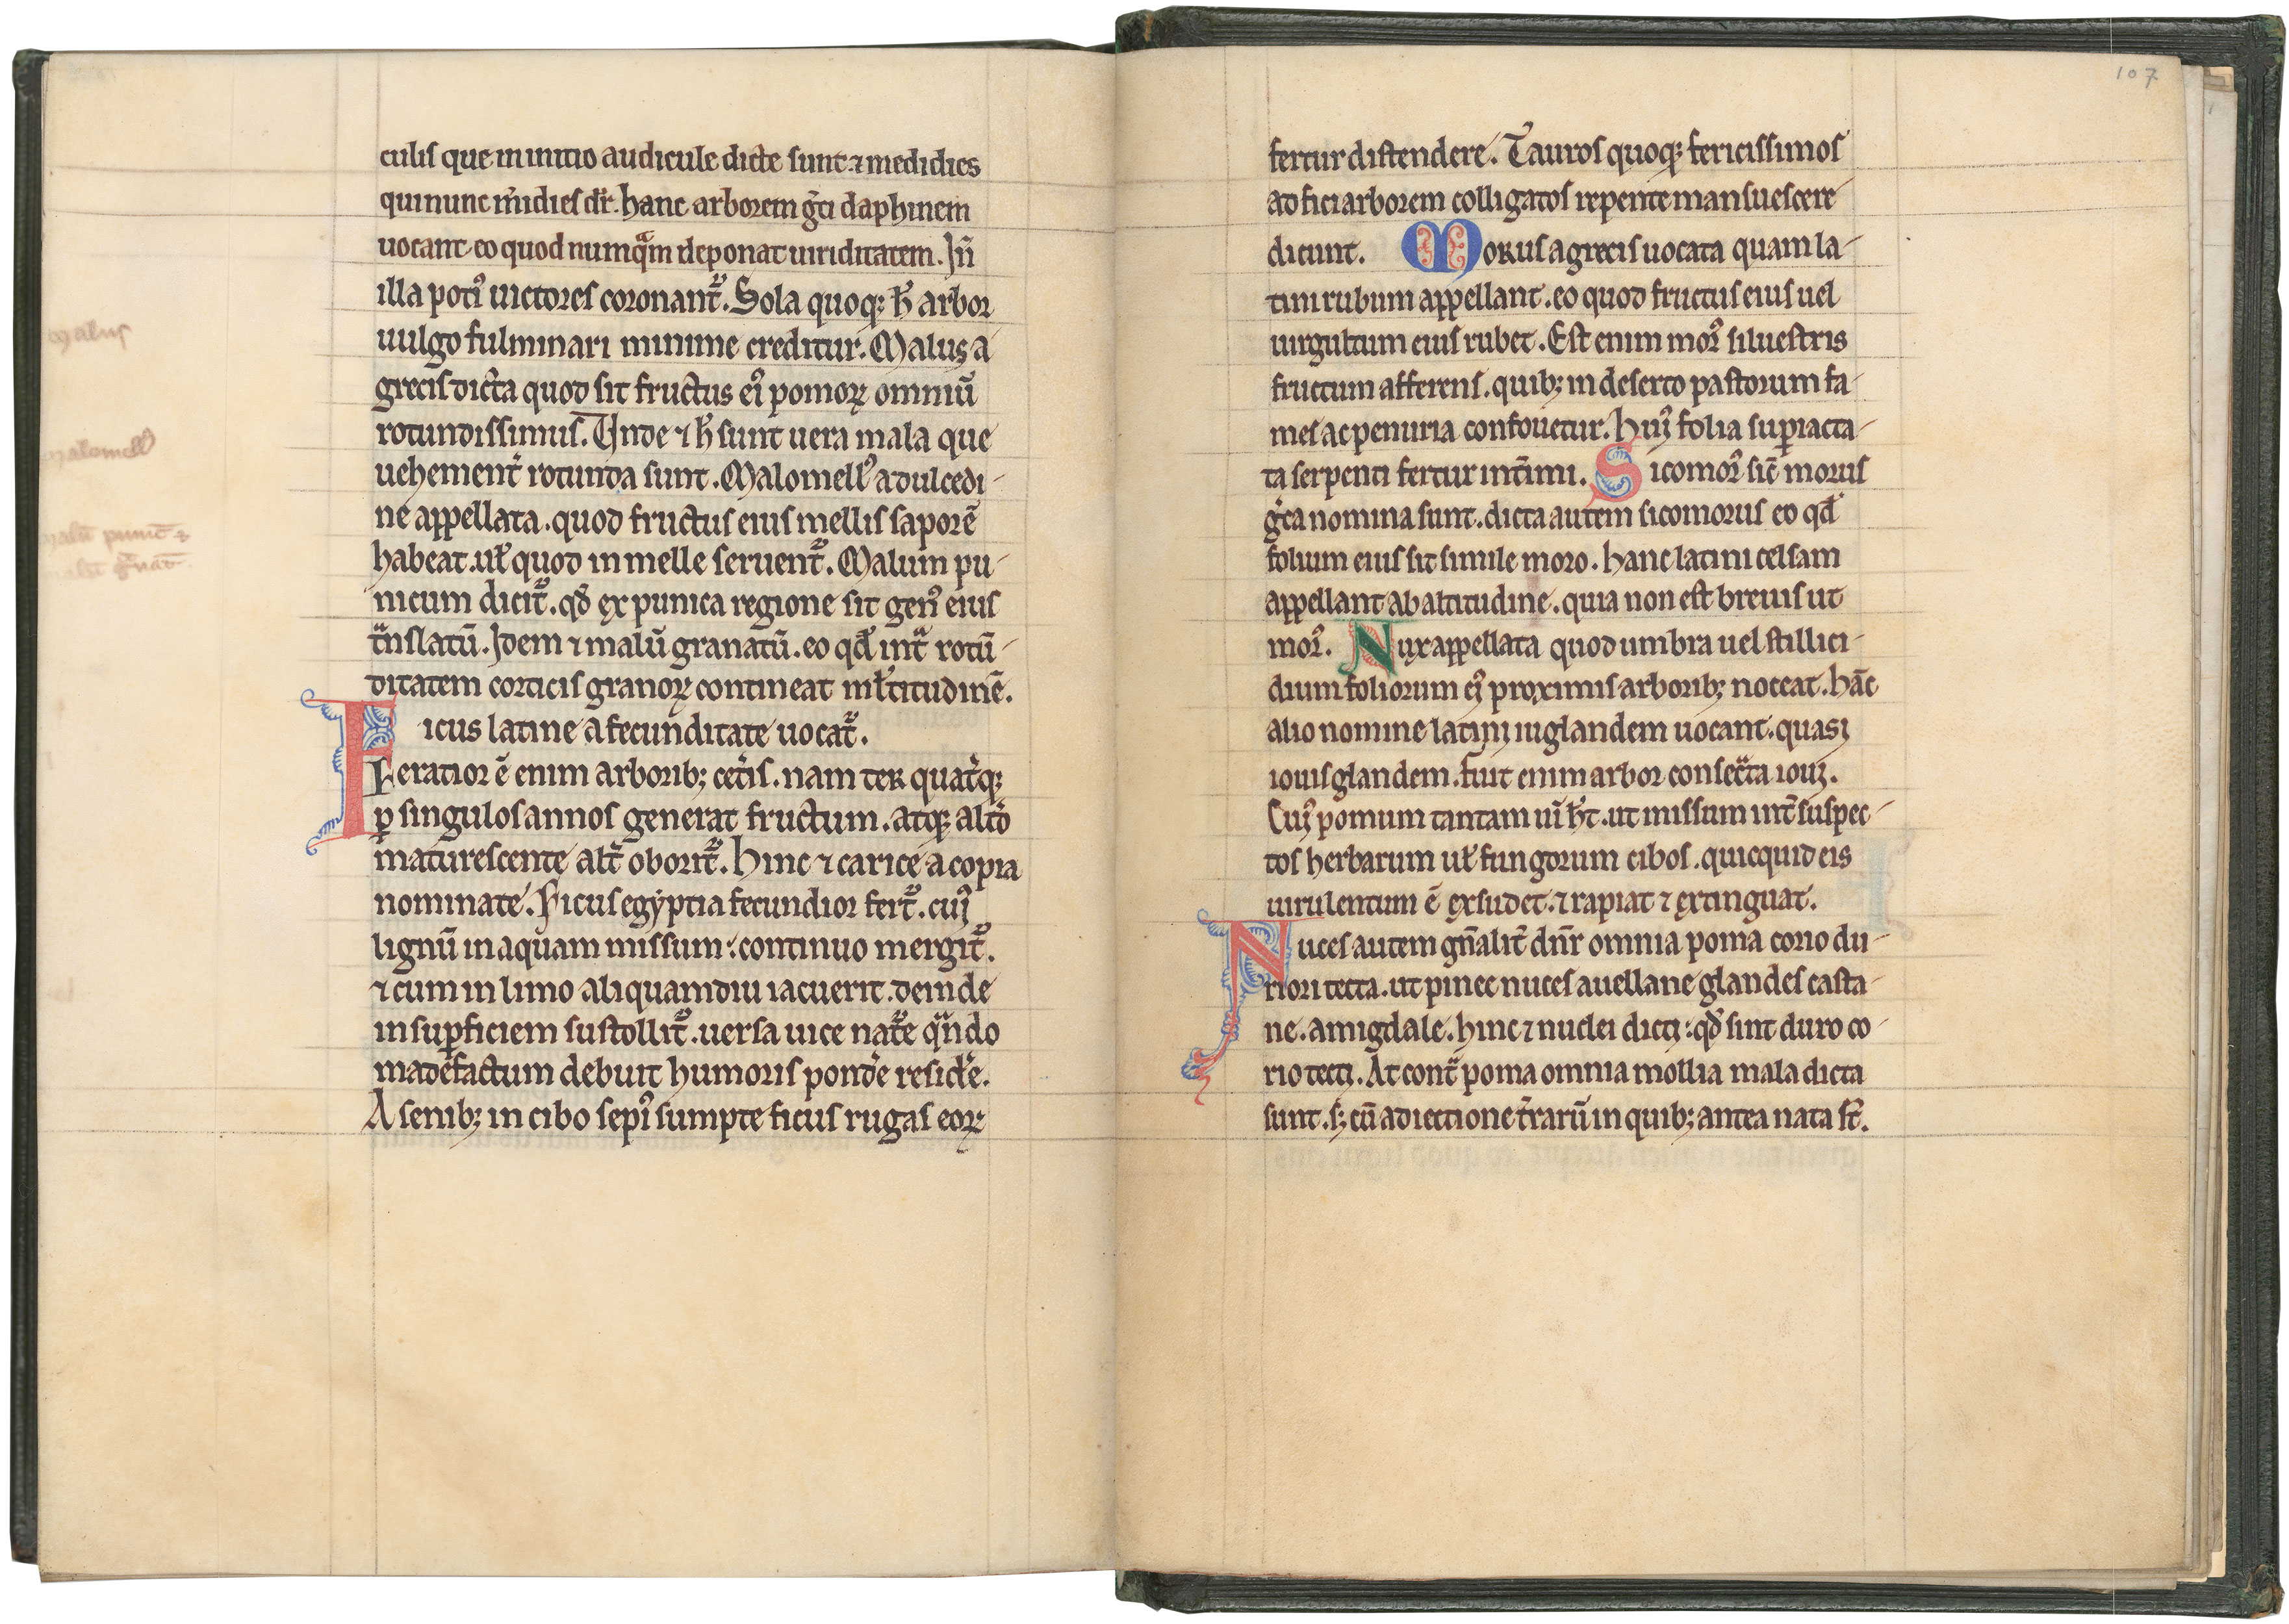 culis que in initio audicule dicte sunt. ⁊ medidies
qui nunc m̾idies dr̄. hanc arborem g̾ci daphinem
uocant. eo quod numqᵃm deponat uiriditatem. Jn̄
illa poti᷒ uictores coronant᷑. Sola quoq; h̾ arbor
uulgo fulminari minime creditur. Malus a
grecis dicta quod sit fructus ei᷒ pomoꝝ omniū
rotundissimus. Unde ⁊ h̾ sunt uera mala que
uehement̾ rotunda sunt. Malomell᷒ a dulcedi-
ne appellata. quod fructus eius mellis saporē
habeat. uł quod in melle seruent᷑. Malum pu-
nicum dicit᷑. qd̾ ex punica regione sit gen᷒ eius
tᵃnslatū. Jdem ⁊ malū granatū. eo qd̾ intᵃ rotū-
ditatem corticis granoꝝ contineat młtitudinē.
Ficus latine a fecunditate uocat᷑.
Feratior ē enim arborib; cet̾is. nam ter quat̾q;
ꝑ singulos annos generat fructum. atq; alt̾o
maturescente alt̾ oborit᷑. Hinc ⁊ carice a copia
nominate. Ficus egyptia fecundior fert᷑. cui᷒
lignū in aquam missum: continuo mergit᷑.
⁊ cum in limo aliquamdiu iacuerit. deinde
in suꝑficiem sustollit᷑. uersa uice nat᷑e qᵃndo
madefactum debuit humoris pond̾e resid̾e.
A senib; in cibo sepi᷒ sumpte ficus rugas eoꝝ
malus
malomell᷒
107
fertur distendere. Tauros quoq; fericissimos
ad fici arborem colligatos repente mansuescere
dicunt. Morus a grecis uocata quam la-
tini rubum appellant. eo quod fructus eius uel
uirgultum eius rubet. Est enim mor᷒ siluestris
fructum afferens. quib; in deserto pastorum fa-
mes ac penuria confouetur. Hui᷒ folia suꝑiacta-
ta serpenti fertur int̾imi. Sicomor᷒ sic̄ morus
g̾ca nomina sunt. dicta autem sicomorus eo qd̾
folium eius sit simile moro. hanc latini celsam
appellant ab altitudine. quia non est breuis ut
mor᷒. Nux appellata quod umbra uel stillici-
dium foliorum ei᷒ proximis arborib; noceat. hāc
alio nomine latini iuglandem uocant. quasi
iouis glandem. fuit enim arbor consecᵃta ioui.
Cui᷒ pomum tantam uī h̾t. ut missum int̾ suspec-
tos herbarum uł fungorum cibos. quicquid eis
uirulentum ē exsudet. ⁊ rapiat ⁊ extinguat.
Nuces autem gn̄alit̾ dn̄r omnia poma corio du-
riori tecta. ut pinee nuces auellane glandes casta-
ne. amigdale. hinc ⁊ nuclei dicti: qd̾ sint duro co-
rio tecti. At contᵃ poma omnia mollia mala dicta
sunt. s; cū adiectione t̾rarū in quib; antea nata st̄.